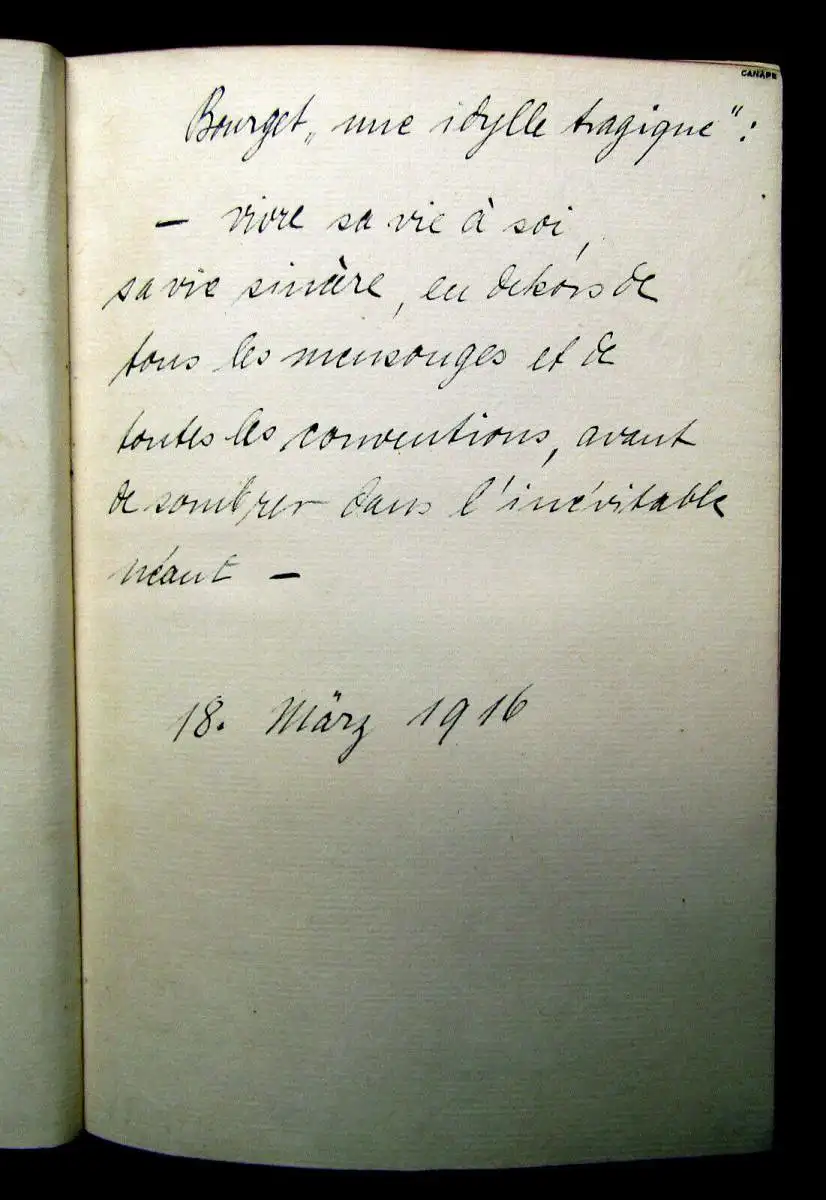 CANAPE
Bourget „une idylle tragique":
— vivre sa vie à soi,
sa vie sincère, en dehors de
tous les mensonges et de
toutes les conventions, avant
de sombrer dans l'inévitable
néant —
18. März 1916